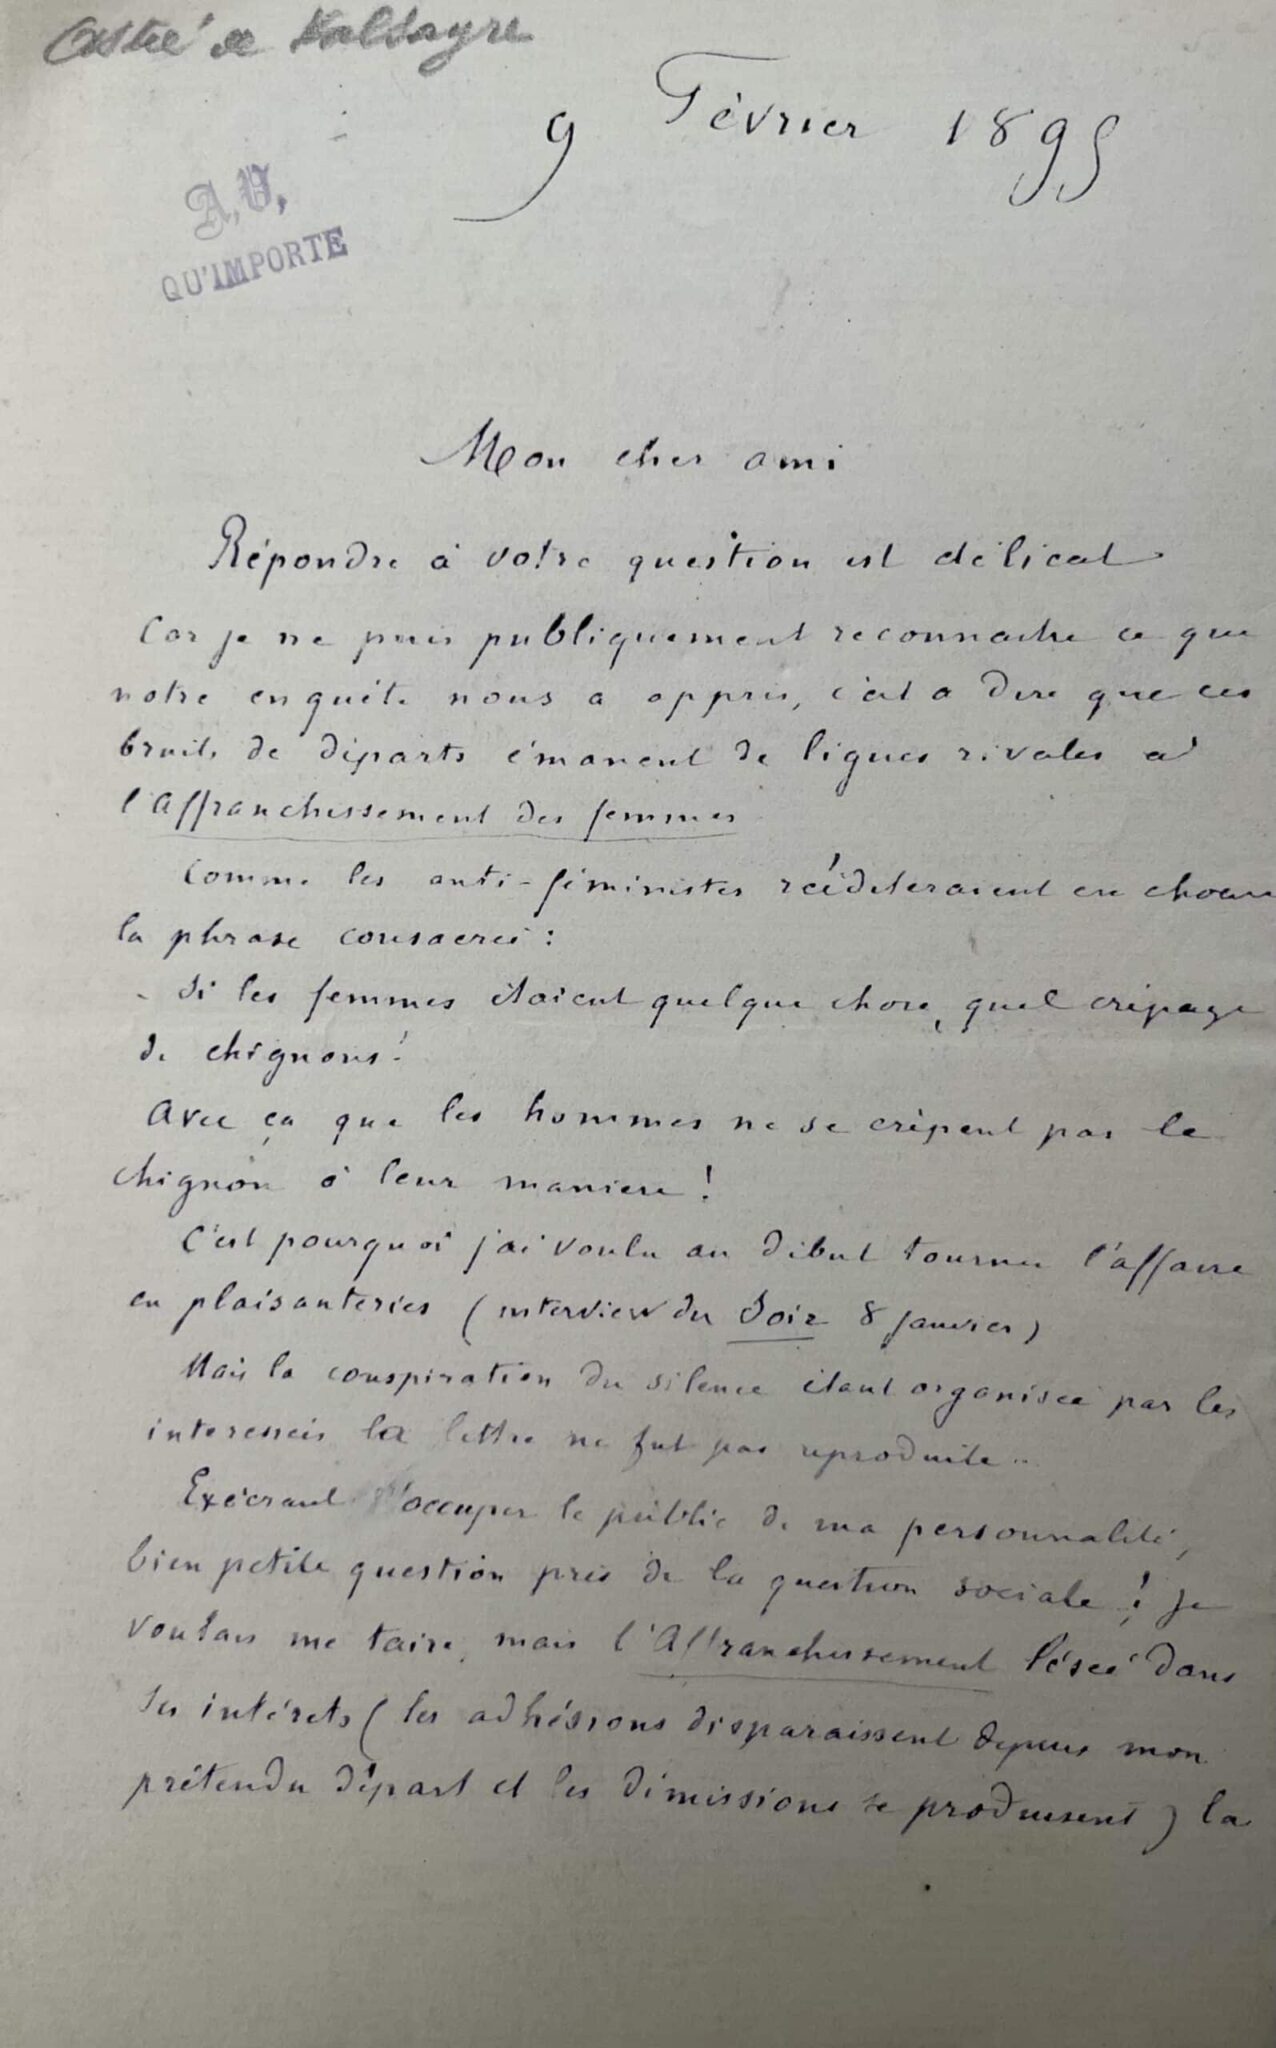 Astié de Valsayre
9 Février 1895
A.V,
QU'IMPORTE
Mon cher ami
Répondre à votre question est délicat
Car je ne puis publiquement reconnaitre ce que
notre enquête nous a appris, c'est a dire que ces
bruits de départs émanent de ligues rivales à
l'Affranchissement des femmes
Comme les anti-féministes réediteraient en choeur
la phrase consacrée :
- Si les femmes étaient quelque chose, quel crépage
de chignons !
Avec ça que les hommes ne se crêpent pas le
chignon à leur maniere !
C'est pourquoi j'ai voulu au début tourner l'affaire
en plaisanteries (interview du Soir 8 janvier)
Mais la conspiration du silence étant organisée par les
interessés la lettre ne fut pas reproduite ..
Exécrant d'occuper le public de ma personnalité,
bien petite question près de la question sociale ! je
voulais me taire, mais l'Affranchissement lésée dans
ses intérêts (les adhésions disparaissent depuis mon
prétendu départ et les démissions se produisent) la